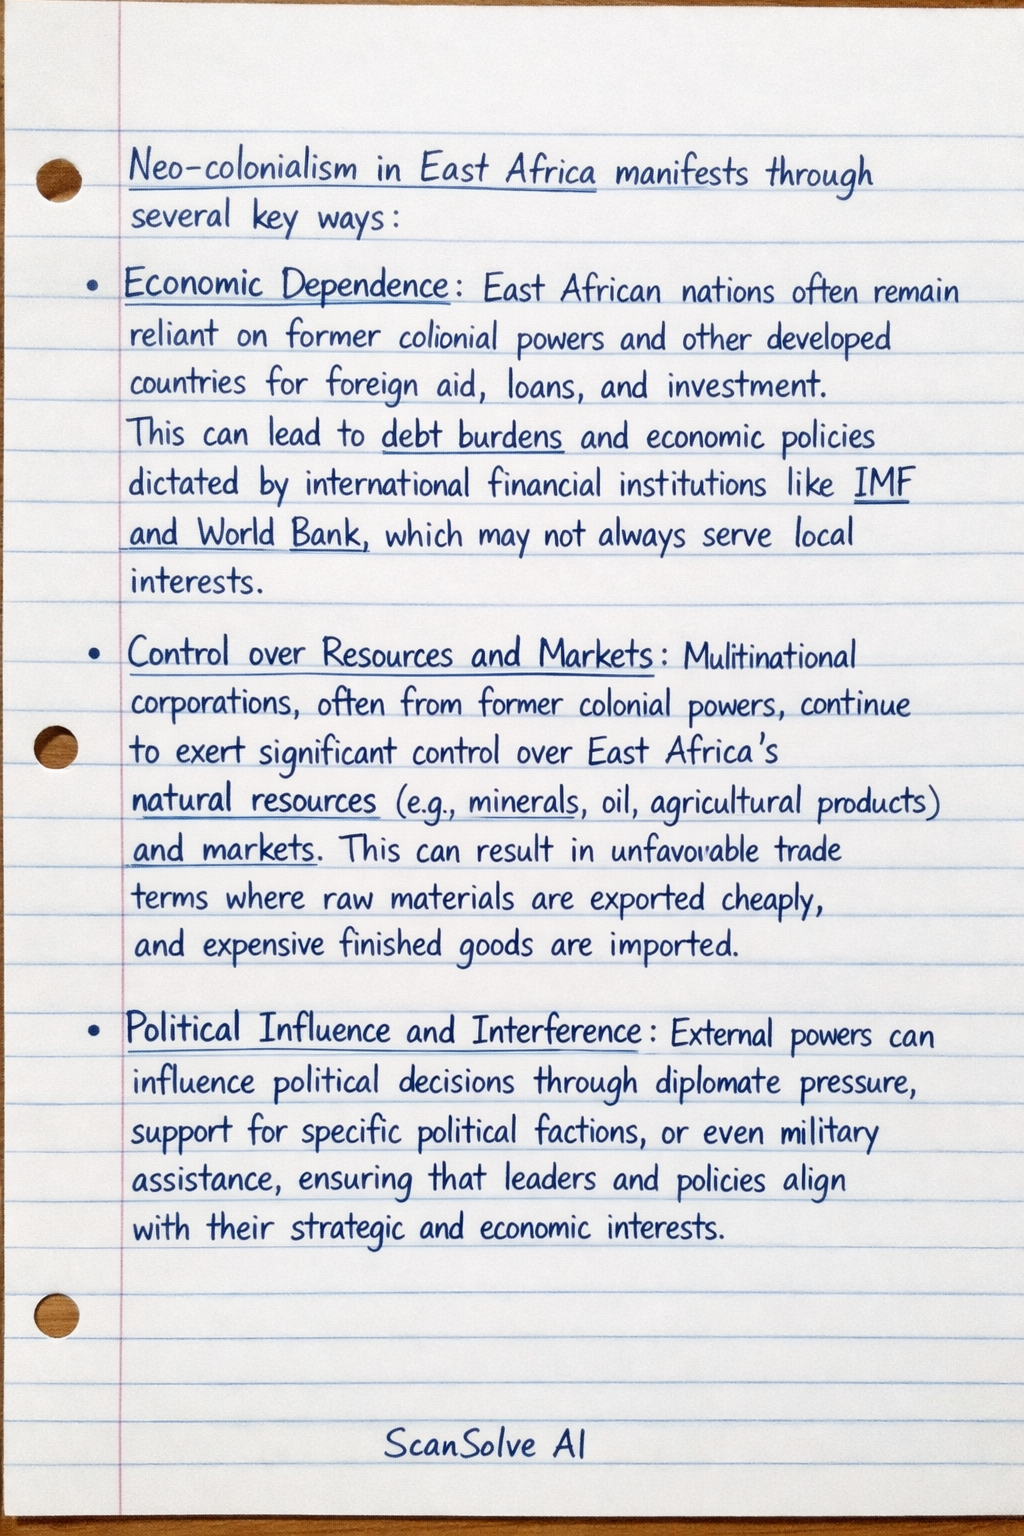 Neo-colonialism in East Africa manifests through
several key ways:
• Economic Dependence: East African nations often remain
reliant on former colionial powers and other developed
countries for foreign aid, loans, and investment.
This can lead to debt burdens and economic policies
dictated by international financial institutions like IMF
and World Bank, which may not always serve local
interests.
• Control over Resources and Markets: Mulitinational
corporations, often from former colonial powers, continue
to exert significant control over East Africa's
natural resources (e.g., minerals, oil, agricultural products)
and markets. This can result in unfavorable trade
terms where raw materials are exported cheaply,
and expensive finished goods are imported.
• Political Influence and Interference: External powers can
influence political decisions through diplomate pressure,
support for specific political factions, or even military
assistance, ensuring that leaders and policies align
with their strategic and economic interests.
ScanSolve AI